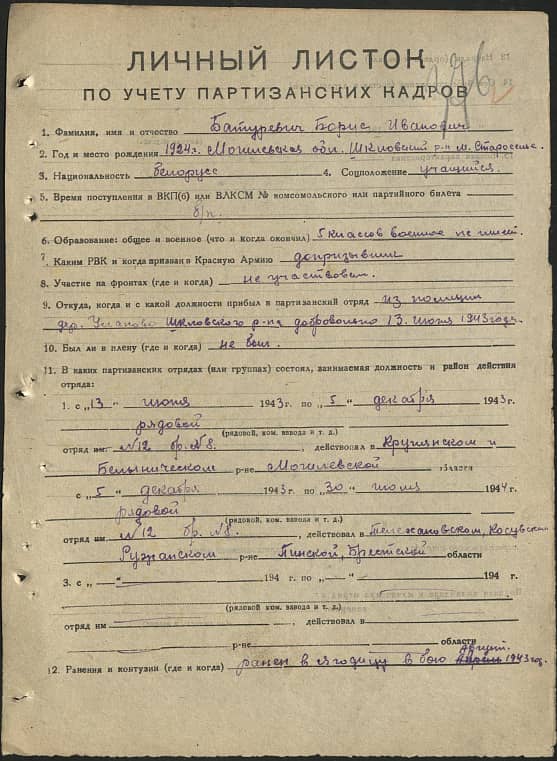 ЛИЧНЫЙ ЛИСТОК
ПО УЧЕТУ ПАРТИЗАНСКИХ КАДРОВ
1. Фамилия, имя и отчество Батуревич Борис Иванович
2. Год и место рождения 1924г. Могилевская обл. Шкловский р-н м. Староселье.
3. Национальность белорусс 4. Соцположение учащийся.
5. Время поступления в ВКП(б) или ВЛКСМ № комсомольского или партийного билета
б/п.
6. Образование: общее и военное (что и когда окончил) 5 классов военное не имеет.
7. Каким РВК и когда призван в Красную Армию допризывник
8. Участие на фронтах (где и когда) не участвовал.
9. Откуда, когда и с какой должности прибыл в партизанский отряд из полиции
дер. Шкловского р-на добровольно 13. июня 1943года.
10. Был ли в плену (где и когда) не был.
11. В каких партизанских отрядах (или группах) состоял, занимаемая должность и район действия
отряда:
1. с „13" июня 1943 г. по „5" декабря 1943г.
рядовой
(рядовой, ком. взвода и т. д.)
отряд им. №12 бр. №8. , действовал в Круглянском и
Белыническом р-не Могилевской области
с „5" декабря 1943 г. по „30" июня 1944 г.
рядовой
(рядовой, ком. взвода и т. д.)
отряд им. №12 бр. №8. , действовал в Телехановском, Косувском
Ружанском р-не Пинской, Брестской области
3. с „—" 194 г. по „—" 194 г.
(рядовой, ком. взвода и т. д.)
отряд им , действовал в
р-не области
12. Ранения и контузии (где и когда) ранен в ягодицу в бою август. 1943 год.